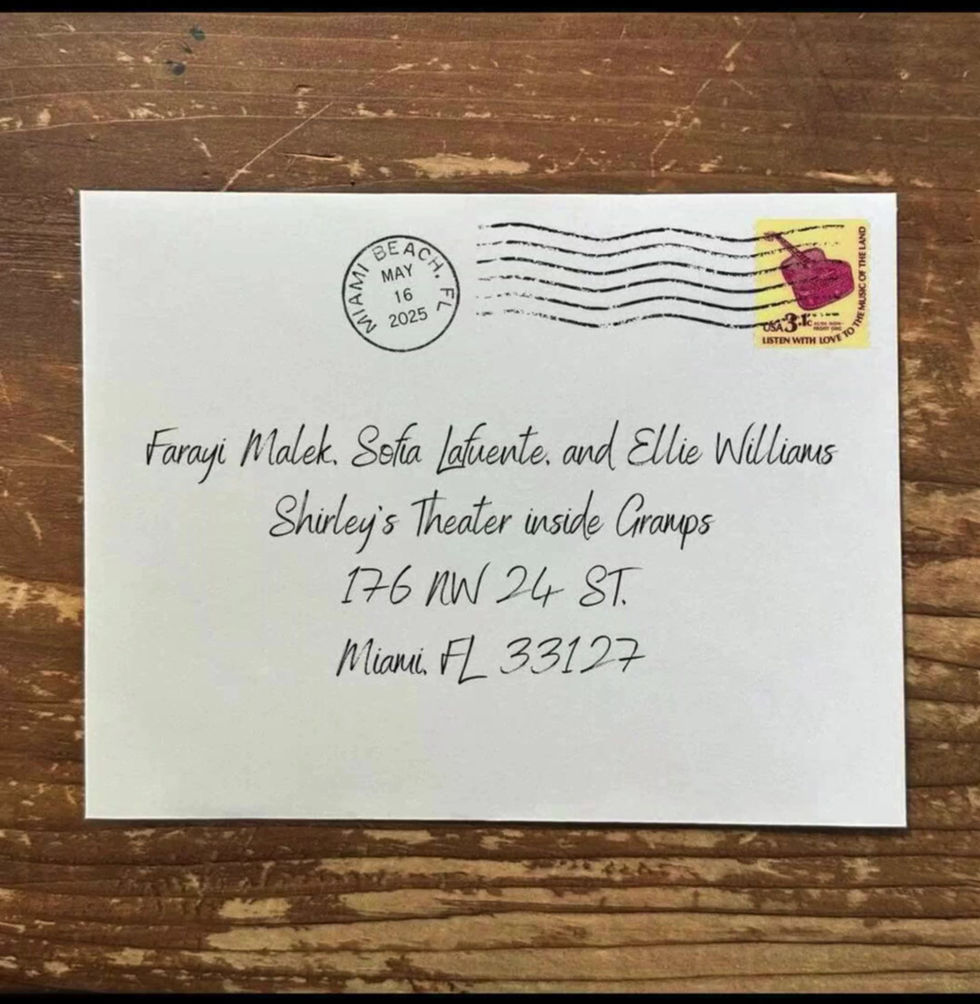 MIAMI BEACH, FL
MAY
16
2025
USA 3.1c
LISTEN WITH LOVE TO THE MUSIC OF THE LAND
Farayi Malek, Sofia Lafuente, and Ellie Williams
Shirley's Theater inside Gramps
176 NW 24 ST.
Miami, FL 33127